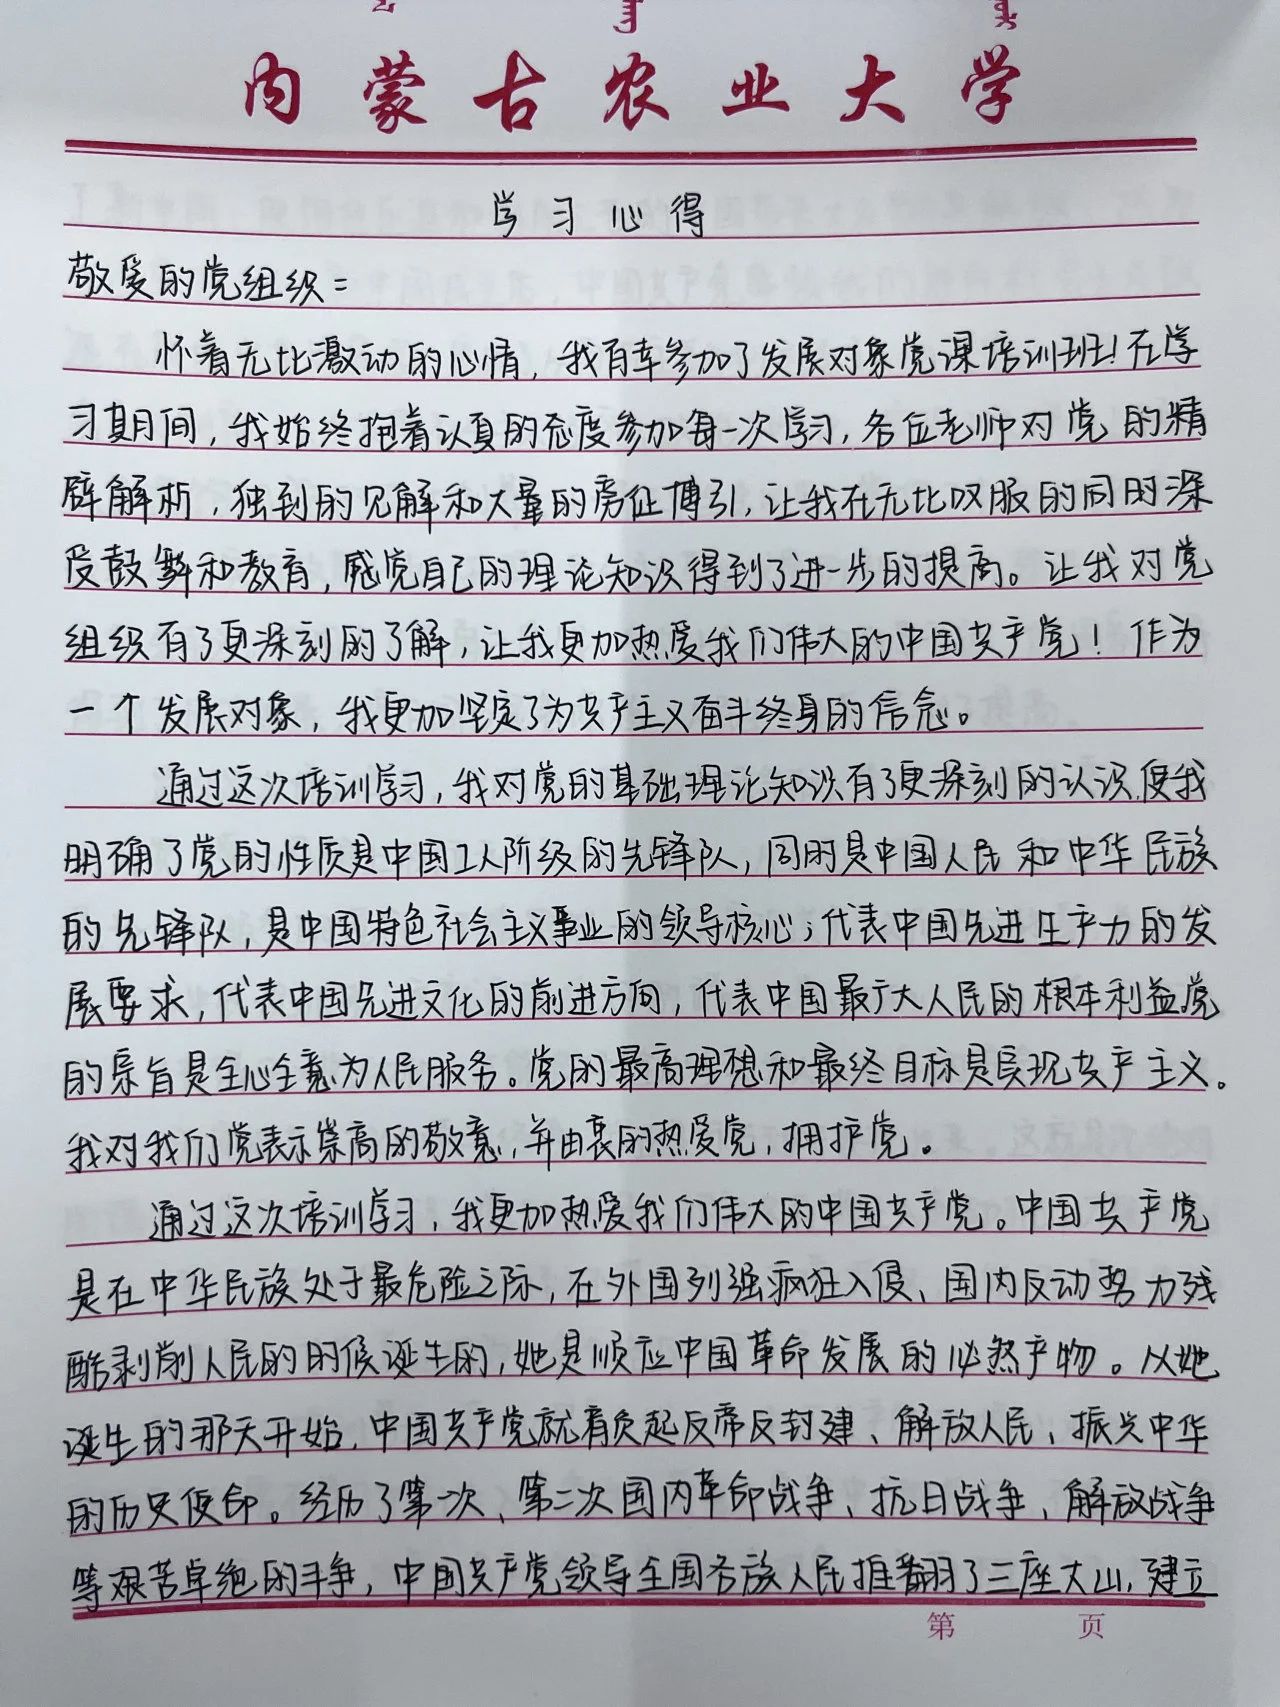 内蒙古农业大学
学习心得
敬爱的党组织：
怀着无比激动的心情，我有幸参加了发展对象党课培训班！在学
习期间，我始终抱着认真的态度参加每一次学习，各位老师对党的精
辟解析，独到的见解和大量的旁征博引，让我在无比叹服的同时深
受鼓舞和教育，感觉自己的理论知识得到了进一步的提高。让我对党
组织有了更深刻的了解，让我更加热爱我们伟大的中国共产党！作为
一个发展对象，我更加坚定了为共产主义奋斗终身的信念。
通过这次培训学习，我对党的基础理论知识有了更深刻的认识，使我
明确了党的性质是中国工人阶级的先锋队，同时是中国人民和中华民族
的先锋队，是中国特色社会主义事业的领导核心；代表中国先进生产力的发
展要求，代表中国先进文化的前进方向，代表中国最广大人民的根本利益。党
的宗旨是全心全意为人民服务。党的最高理想和最终目标是实现共产主义。
我对我们党表示崇高的敬意，并由衷的热爱党，拥护党。
通过这次培训学习，我更加热爱我们伟大的中国共产党。中国共产党
是在中华民族处于最危险之际，在外国列强疯狂入侵、国内反动势力残
酷剥削人民的时候诞生的，她是顺应中国革命发展的必然产物。从她
诞生的那天开始，中国共产党就肩负起反帝反封建、解放人民、振兴中华
的历史使命。经历了第一次、第二次国内革命战争、抗日战争、解放战争
等艰苦卓绝的斗争，中国共产党领导全国各族人民推翻了三座大山，建立
第 页